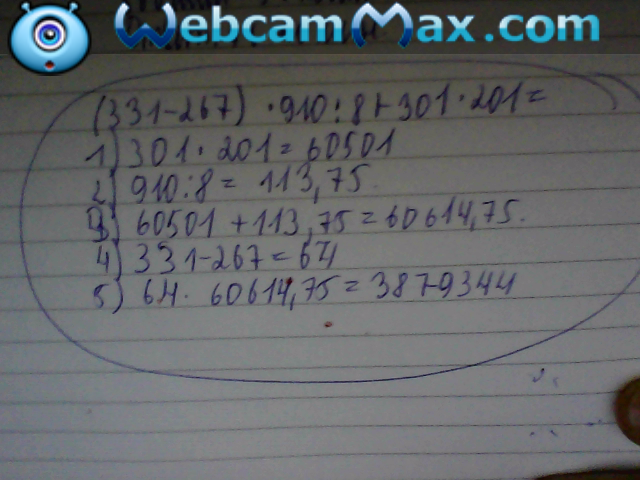 WebcamMax.com
(331-267) · 910 : 8 + 301 · 201 =
1) 301 · 201 = 60501
2) 910 : 8 = 113,75
3) 60501 + 113,75 = 60614,75.
4) 331-267 = 64
5) 64 · 60614,75 = 3879344